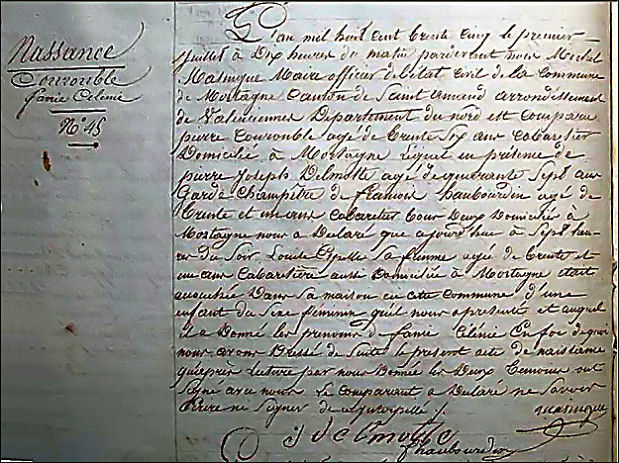 Naissance
Courouble
fanie Célénie
N° 45
L'an mil huit cent trente cinq le premier
juillet à Dix heures du matin pardevant nous Michel
Masingue Maire officier de l'état civil de la commune
de Mortagne Canton de Saint amand arrondissement
de Valenciennes Département du nord est comparu
pierre Courouble agé de trente six ans cabaretier
Domicilié à Mortagne lequel en présence de
pierre Joseph Delmotte agé de quarante Sept ans
Garde Champêtre de francois haubourdin agé de
trente et un ans Cabaretier tous Deux Domiciliés à
Mortagne nous a Déclaré que à sept heu-
res du Soir Louise Sa femme agée de trente et
un ans Cabaretière aussi domiciliée à Mortagne était
accouchée Dans Sa maison en cette commune d'une
enfant du Sexe féminin qu'il nous a présenté et auquel
il a Donné les prénoms de fanie Célénie En foi de quoi
nous avons Dressé de Suite le présent acte de naissance
qu'après lecture par nous Donnée les Deux témoins ont
Signé avec nous Le Comparant a Déclaré ne Savoir
Ecrire ne Signer de ce Interpellé /.
Masingue
J J Delmotte
f haubourdin